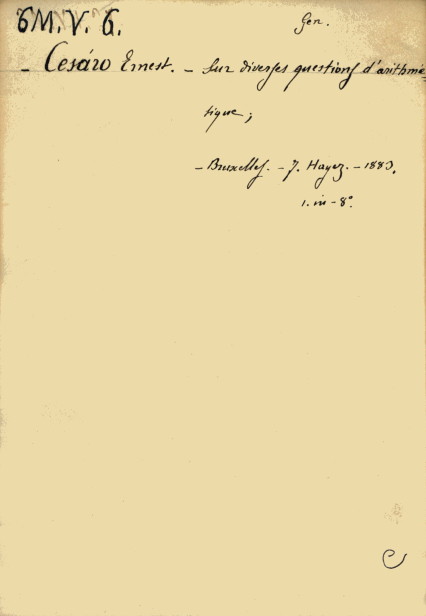 6M.V.6.
Gen.
- Cesáro Ernest. - Sur diverses questions d'arithmé=
tique;
- Bruxelles. - J. Hayez. - 1883.
1. in-8°.
C